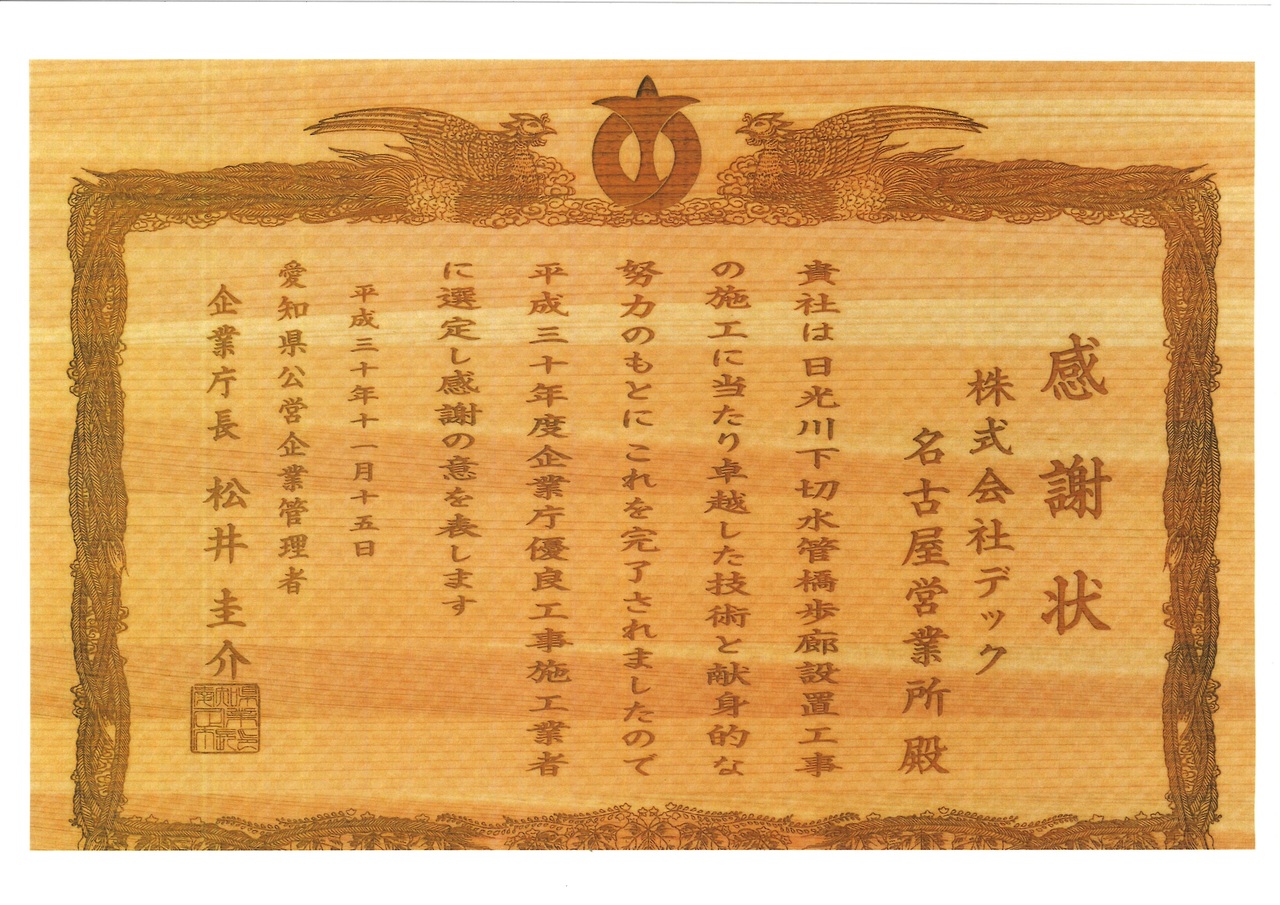 感謝状
株式会社デック
名古屋営業所 殿
貴社は日光川下切水管橋歩廊設置工事
の施工に当たり卓越した技術と献身的な
努力のもとにこれを完了されましたので
平成三十年度企業庁優良工事施工業者
に選定し感謝の意を表します
平成三十年十一月十五日
愛知県公営企業管理者
企業庁長 松井圭介